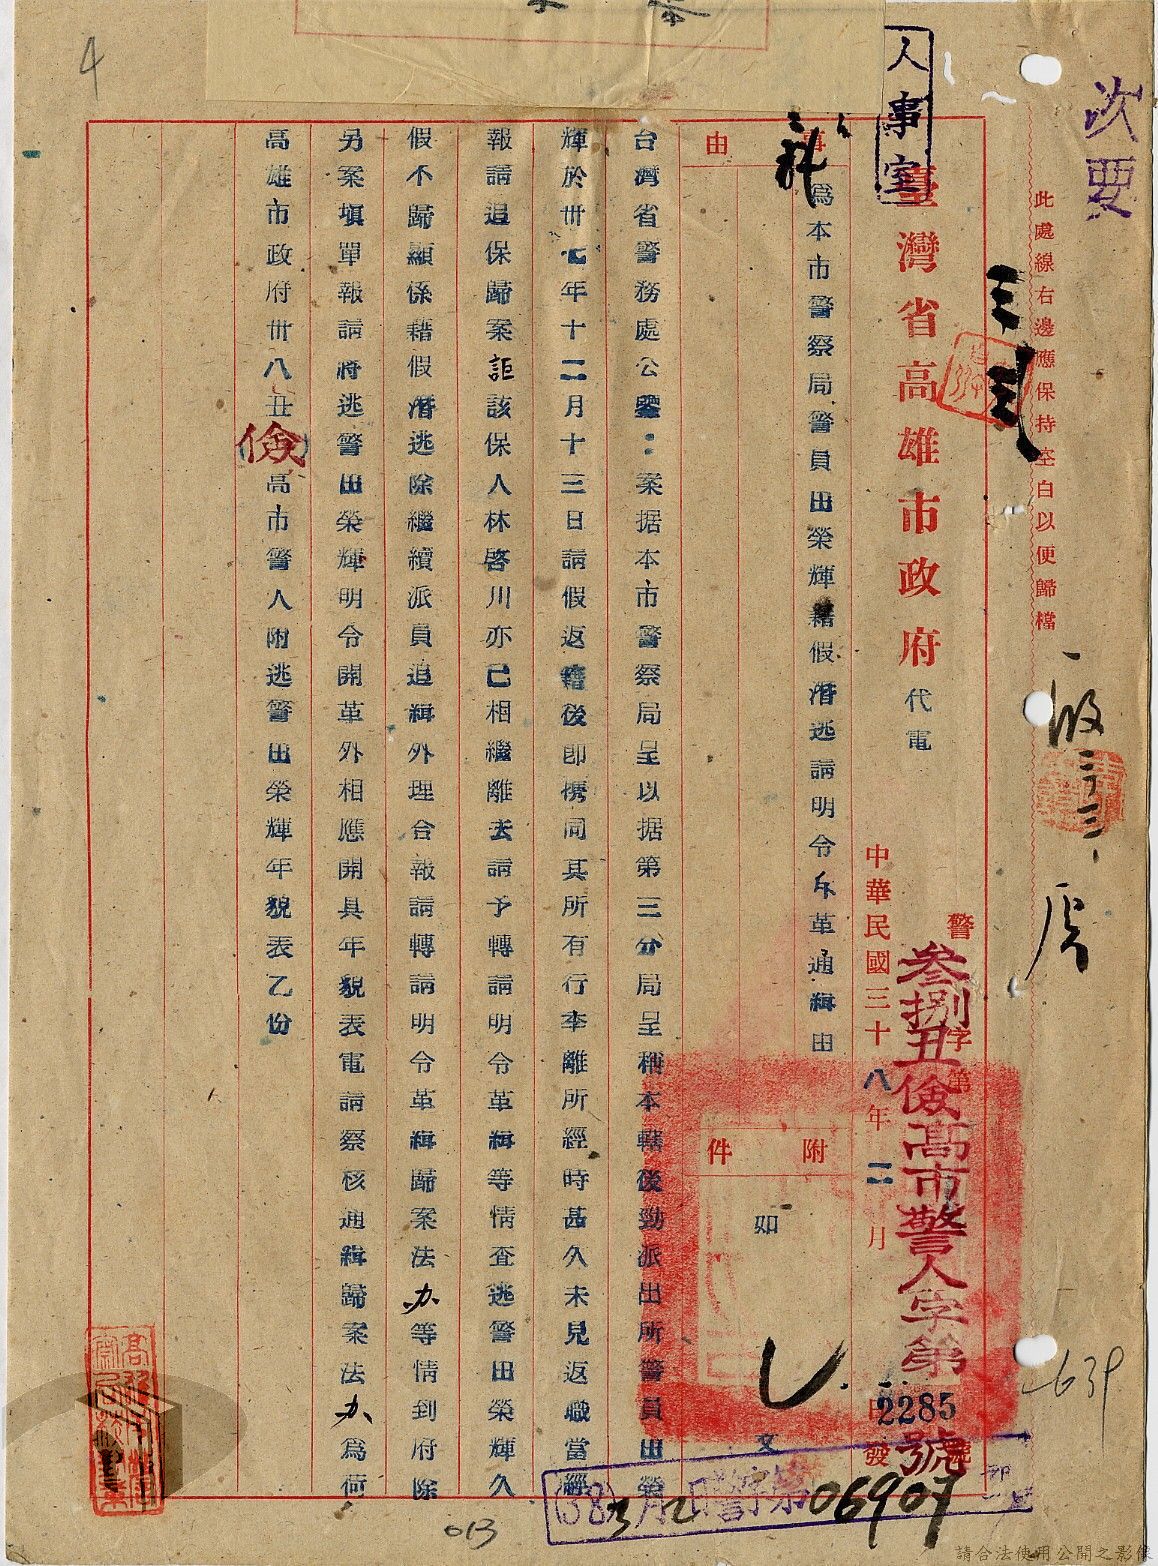 次要
此處線右邊應保持空白以便歸檔
人事室
臺灣省高雄市政府代電
警字第 號
叁捌丑儉高市警人字第2285號
中華民國三十八年二月 日發
事由
為本市警察局警員田榮輝藉假潛逃請明令斥革通緝由
附件
如文
台灣省警務處公鑒：案据本市警察局呈以据第三分局呈稱本轄後勁派出所警員田榮
輝於卅七年十二月十三日請假返籍後即携同其所有行李離所經時甚久未見返職當經
報請追保歸案詎該保人林啓川亦已相繼離去請予轉請明令革緝等情查逃警田榮輝久
假不歸顯係藉假潛逃除繼續派員追緝外理合報請轉請明令革緝歸案法办等情到府除
另案填單報請將逃警田榮輝明令開革外相應開具年貌表電請察核通緝歸案法办為荷
高雄市政府卅八丑(儉)高市警人附逃警田榮輝年貌表乙份
(38)3月2日警第06907
4
639
013
請合法使用公開之影像